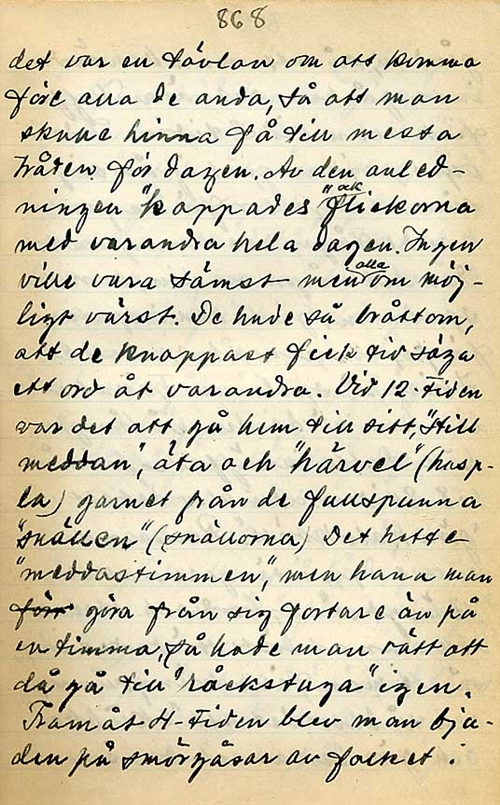 868
det var en tävlan om att komma
före alla de anda, så att man
skulle hinna få till messta
tråden för dagen. Av den anled-
ningen "kappades" ock flickorna
med varandra hela dagen. Ingen
ville vara sämst men alla om möj-
ligt värst. De hade så bråttom,
att de knappast fick tid säga
ett ord åt varandra. Vid 12-tiden
var det att gå hem till sitt, "till
meddan", äta och "härvel" (hasp-
la) garnet från de fullspunna
"snällen" (snällorna) Det hette
"meddastimmen", men hann man
förr göra från sig fortare än på
en timma, så hade man rätt att
då gå till "råckstuga" igen.
Framåt 4-tiden blev man bju-
den på smörgåsar av folket i